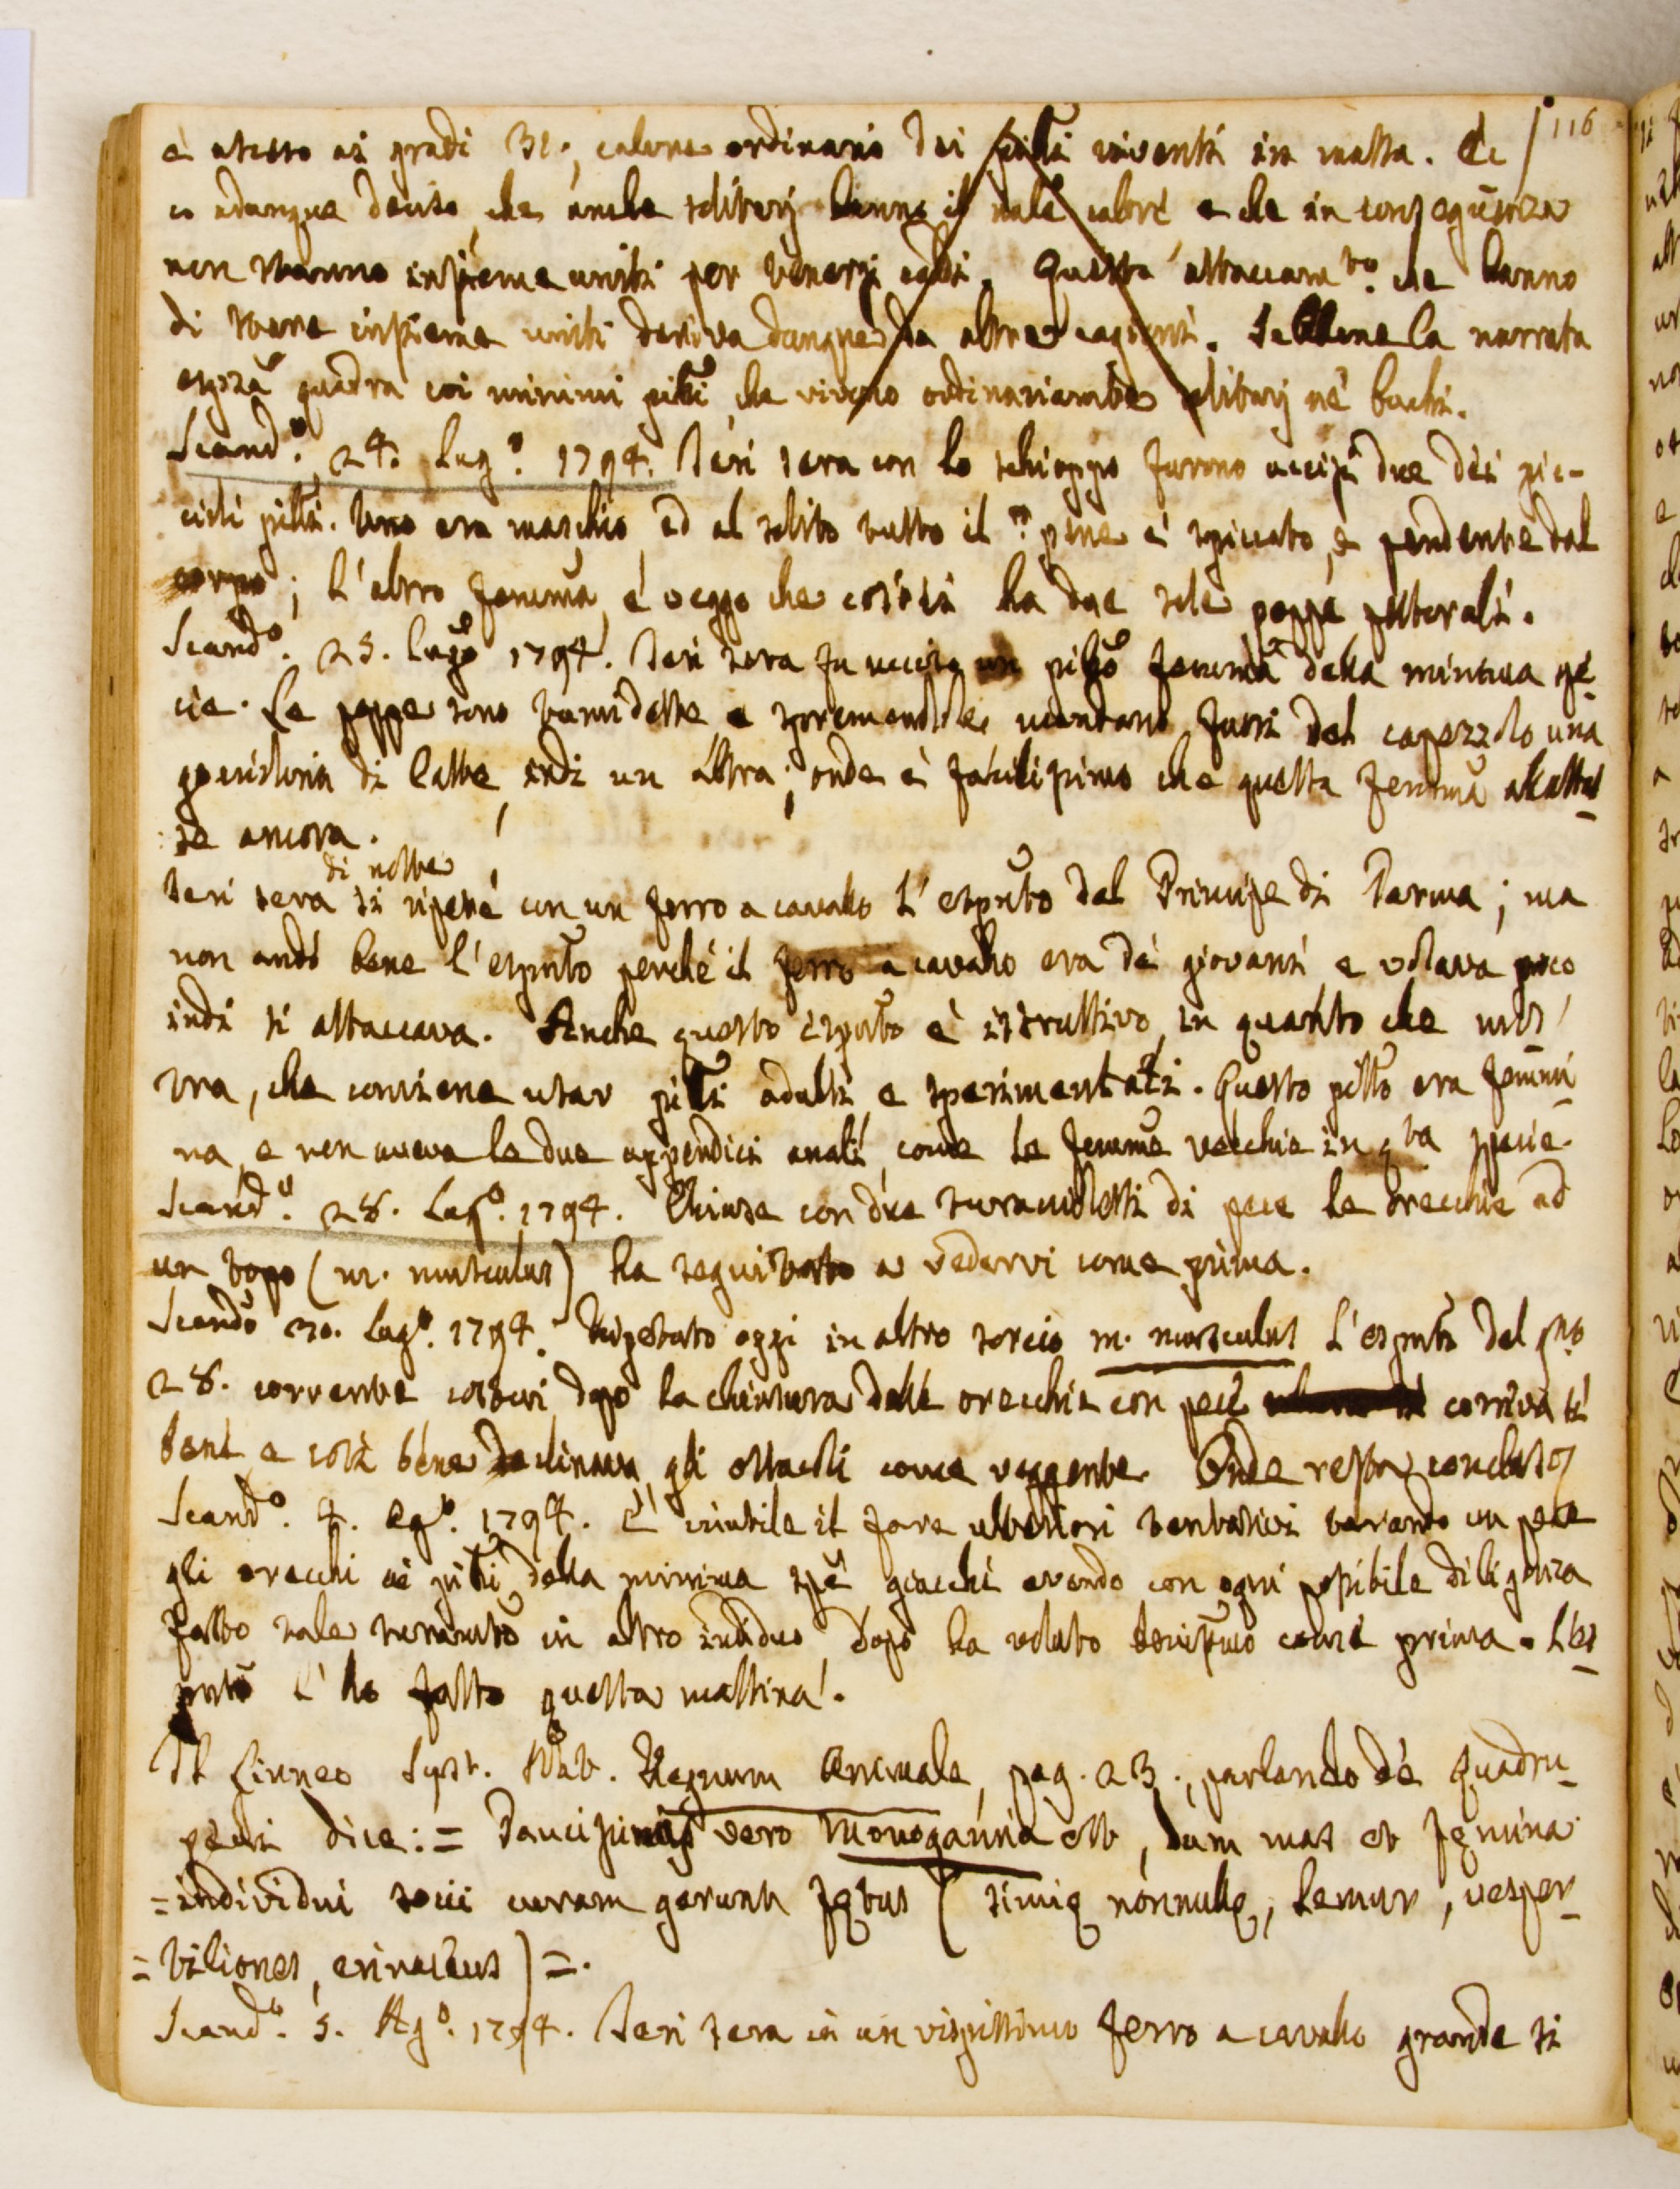 116
è asceso ai gradi 31., calore ordinario dei pilli viventi in massa. Ec
co adunque deciso, che anche solitarj hanno il tale calore e che in conseguenza
non stanno insieme uniti per tenersi caldi. Questa attaccam.to che hanno
di stare insieme uniti deriva dunque da altre cagioni. Sebbene la narrata
espza quadra coi minimi pilli che vivono ordinariamte solitarj ne' buchi.
Scand.o 24. Lug.o 1794. Ieri sera con lo schioppo furono uccisi due dei pic-
cioli pilli. Uno era maschio ed al solito tutto il pene è spiccato, e pendente dal
corpo; l'altro femina, e veggo che costei ha due sole poppe pettorali.
Scand.o 25. Lugo 1794. Ieri sera fu ucciso un pillo femina della minima spe
cie. Le poppe sono tumidette e spremendole mandano fuori del capezzolo una
gocciolina di latte, indi un altra; onde è facilissimo che questa femina allattas
se ancora.
di notte
Ieri sera si ripetè con un ferro a cavallo l'espmto dal Principe di Parma; ma
non andò bene l'espmto perchè il ferro a cavallo era de' giovani e volava poco
indi si attaccava. Anche questo espmto è istruttivo, in quanto che mos
tra, che conviene usar pilli adulti e sperimentati. Questo pillo era femmi
na, e non aveva le due appendici anali, come le femme vecchie in qta specie.
Scand.o 28. Lug.o 1794. Chiuse con due turaccioletti di pece le orecchie ad
un topo (m. musculus) ha seguitato a vedervi come prima.
Scando 30. Lug.o 1794. Ripetuto oggi in altro sorcio m. musculus l'espmto del gno
28. corrente costui dopo la chiusura delle orecchie con pece correva sì
bene e così bene declinava gli ostacoli come veggente. Onde resta concluso
Scand.o 4. Ag.o 1794. È inutile il fare ulteriori tentativi turando con pece
gli orecchi ai pilli della minima spe giacchè avendo con ogni possibile diligenza
fatto tale turamto in altro individuo, dopo ha volato benissimo come prima. L'es
pmto l'ho fatto questa mattina.
Il Linneo Syst. Nat. Regnum Animale, pag. 23., parlando de' Quadru-
pedi dice: = Paucissimis vero Monogamia est, dum mas et femina
=individui socii curam gerunt fętus (simię nonnullę, Lemur, vesper-
=tiliones, erinaceus) =.
Scand.o 5. Ag.o 1794. Ieri sera in un vispissimo ferro a cavallo grande si